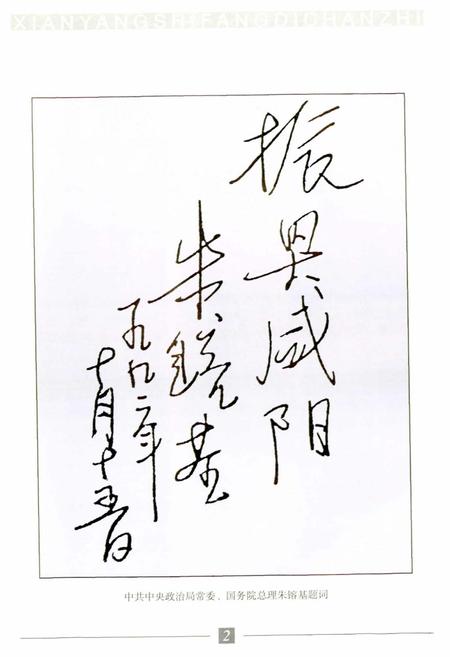 XIANYANGSHIFANGDICHANZHI
振兴咸阳
朱镕基
一九九二年
十月十五日
中共中央政治局常委、国务院总理朱镕基题词
2